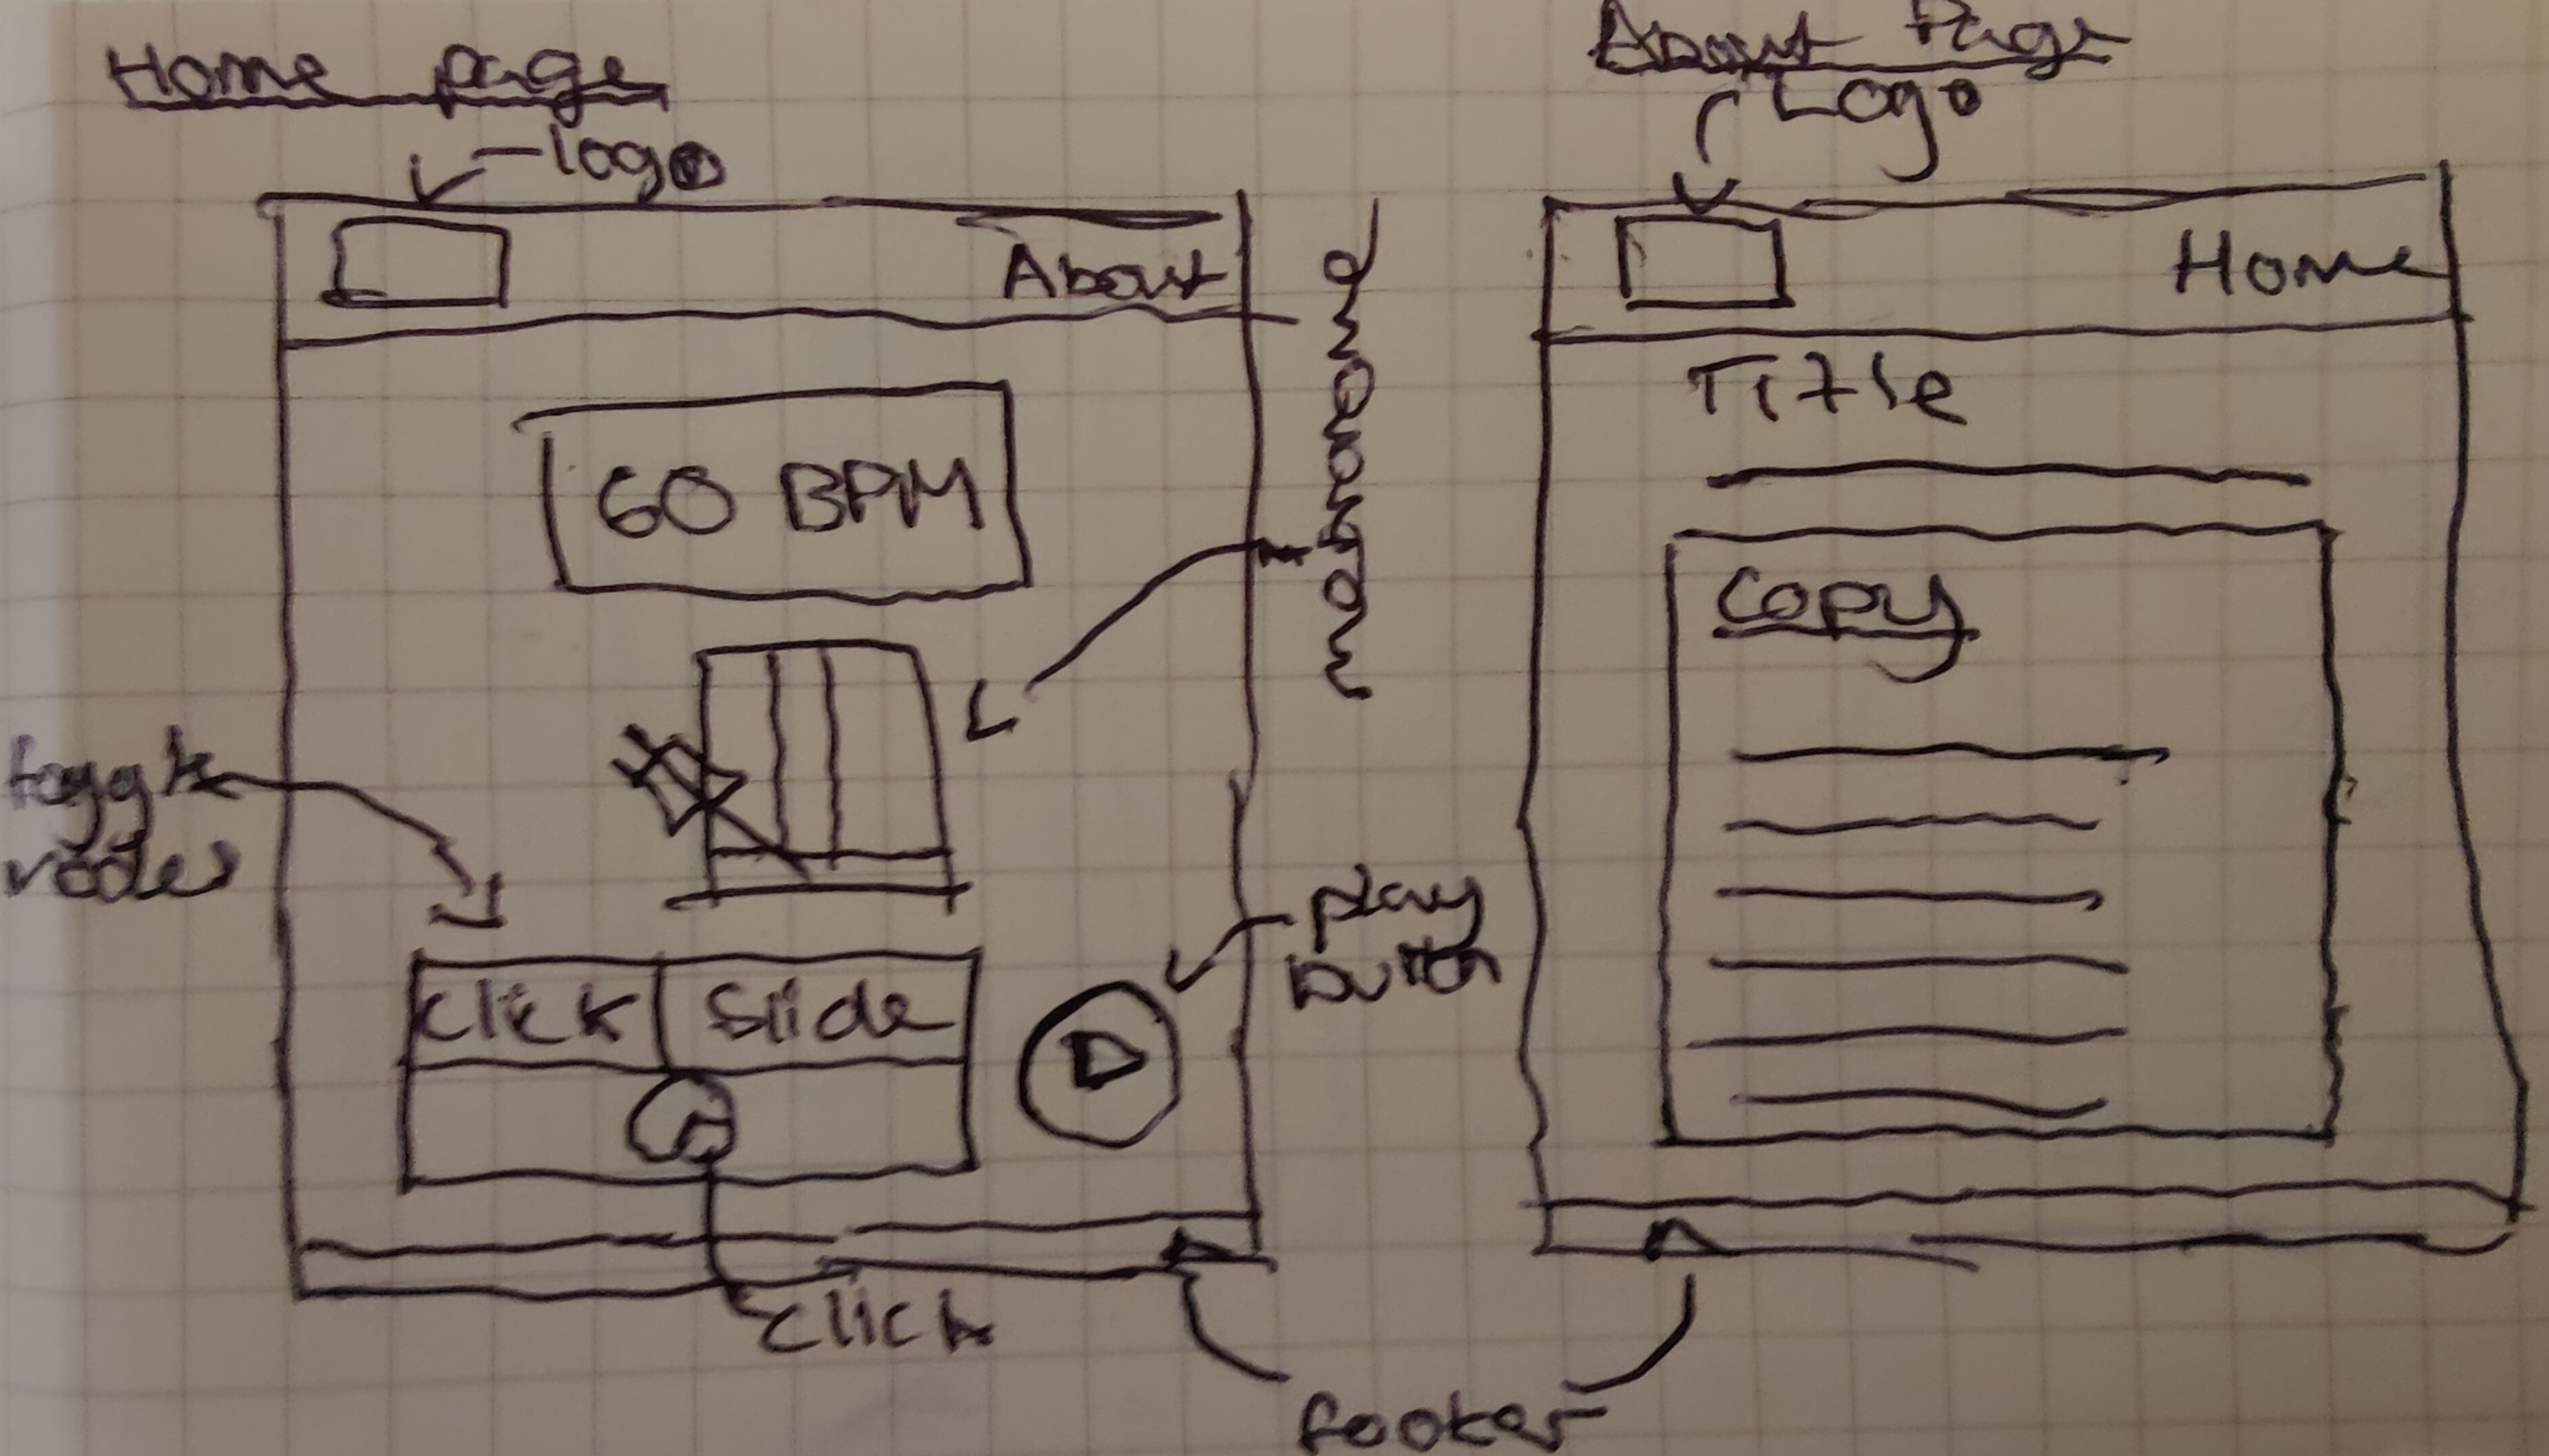 Home page
logo
About
60 BPM
metronome
toggle
click slide
play
button
click
About Page
Logo
Home
Title
Copy
footer